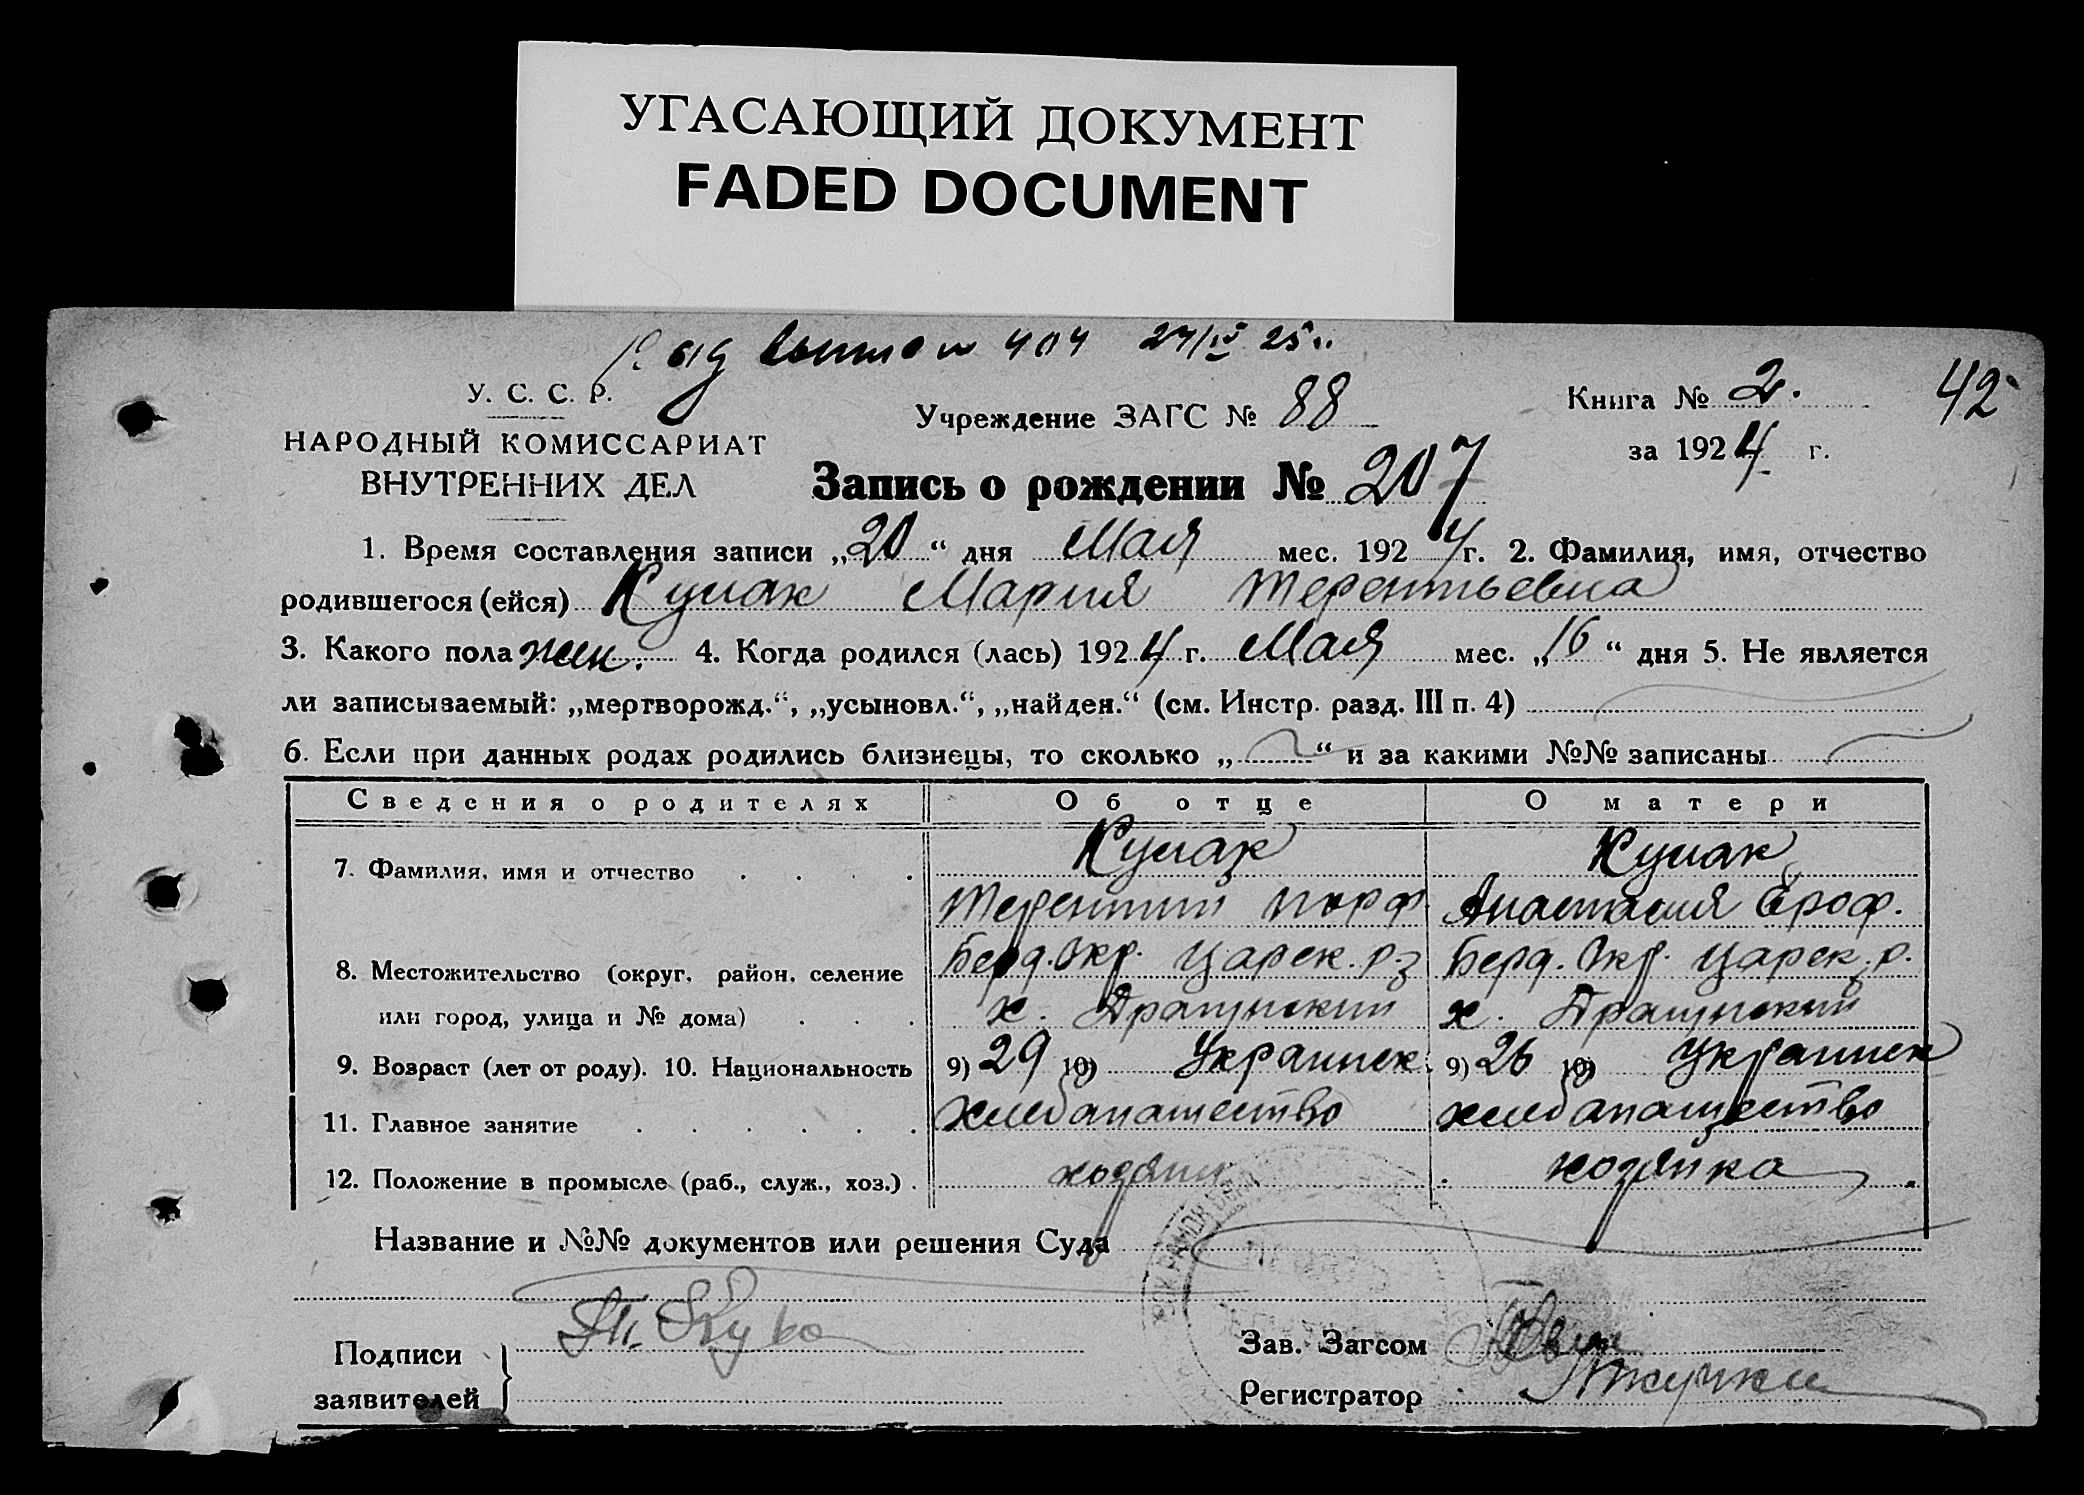 УГАСАЮЩИЙ ДОКУМЕНТ
FADED DOCUMENT
404 24/IV 25
У. С. С. Р.
Учреждение ЗАГС № 88
Книга № 2.
42
НАРОДНЫЙ КОМИССАРИАТ
за 1924 г.
ВНУТРЕННИХ ДЕЛ
Запись о рождении № 207
1. Время составления записи „20“ дня Мая мес. 1924 г. 2. Фамилия, имя, отчество
родившегося (ейся) Мария Терентьевна
3. Какого пола жен. 4. Когда родился (лась) 1924 г. Мая мес. „16“ дня 5. Не является
ли записываемый: „мертворожд.“, „усыновл.“, „найден.“ (см. Инстр. разд. III п. 4)
6. Если при данных родах родились близнецы, то сколько „ “ и за какими №№ записаны
Сведения о родителях Об отце О матери
7. Фамилия, имя и отчество
Терентий Порф. Анастасия Ероф.
8. Местожительство (округ, район, селение Берд. Окр. Царек. р. Берд. Окр. Царек. р.
или город, улица и № дома) х. х.
9. Возраст (лет от роду). 10. Национальность 9) 29 10) Украинск. 9) 26 10) Украинск
11. Главное занятие хлебопашество хлебопашество
12. Положение в промысле (раб., служ., хоз.) хозяин хозяйка
Название и №№ документов или решения Суда
Подписи
заявителей
Зав. Загсом
Регистратор